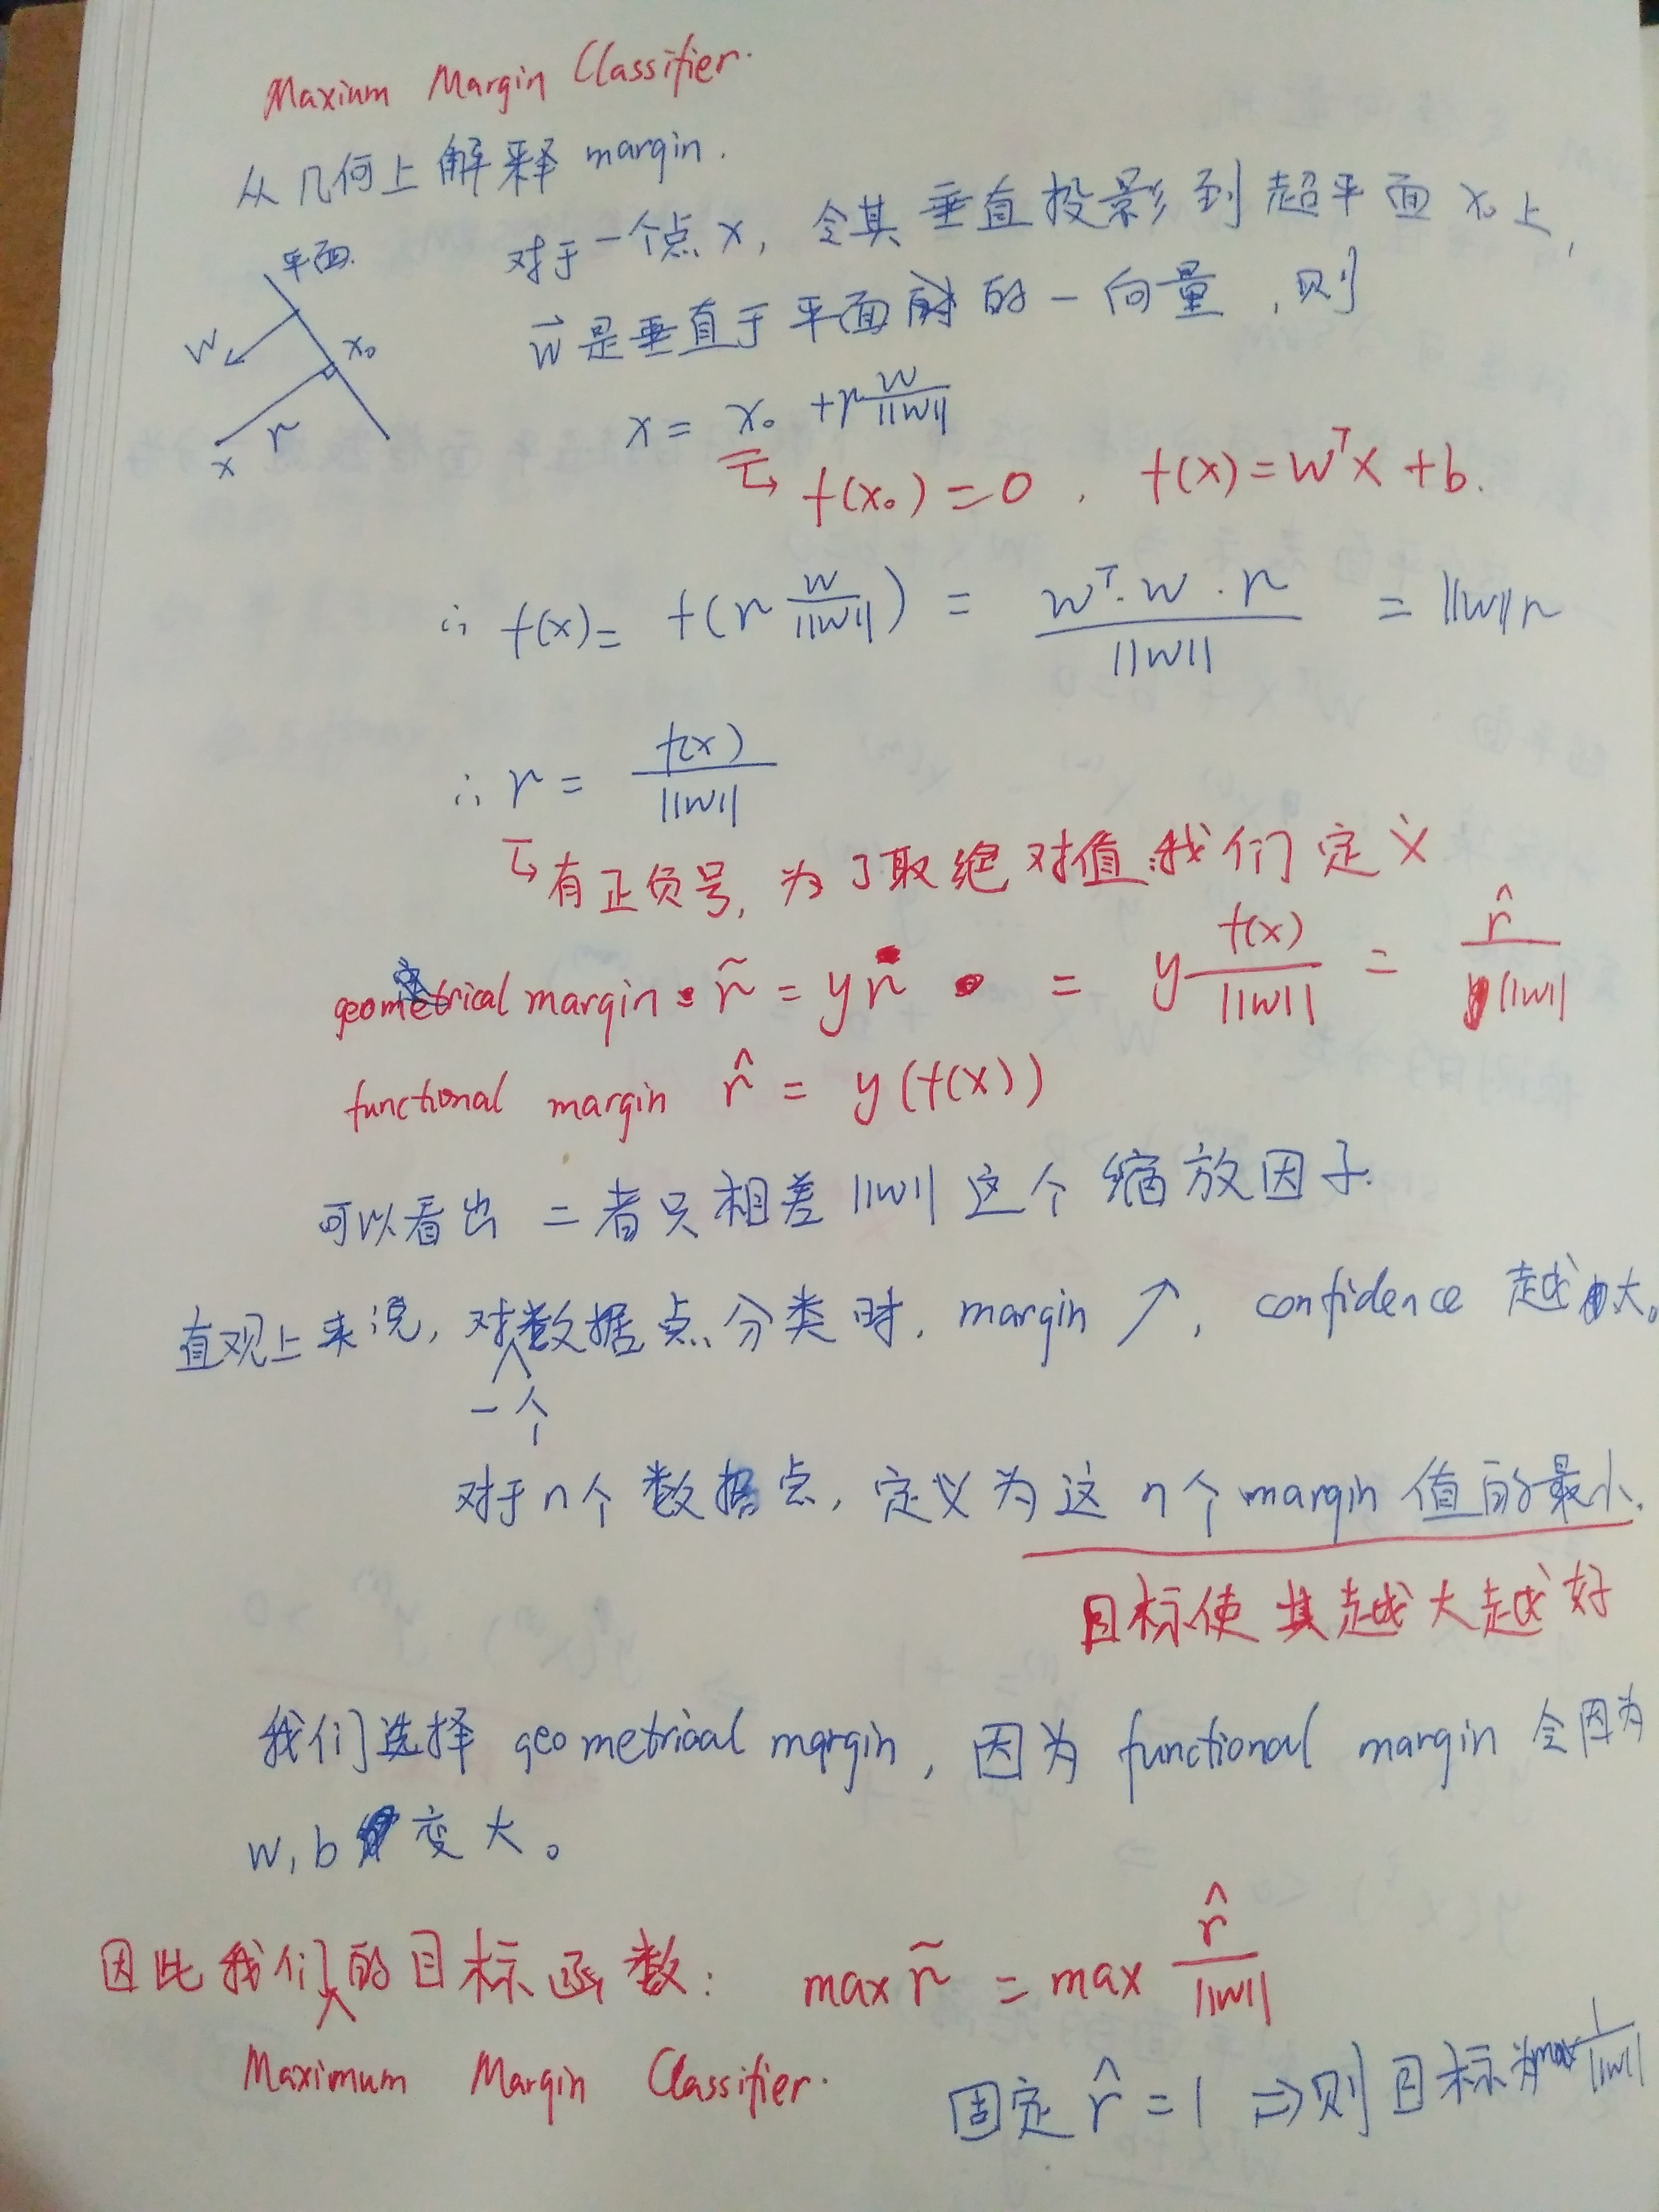 Maxium Margin Classifier.
从几何上解释 margin.
平面.
W
x₀
r
x
对于一个点x, 令其垂直投影到超平面x₀上,
w⃗是垂直于平面的一向量,则
x = x₀ + r w/||w||
↳ f(x₀) = 0 , f(x) = wᵀx + b.
∴ f(x) = f(r w/||w||) = wᵀ·w·r/||w|| = ||w||r
∴ r = f(x)/||w||
↳有正负号,为了取绝对值,我们定义
geometrical margin: r̃ = yr = y f(x)/||w|| = r̂/||w||
functional margin r̂ = y(f(x))
可以看出二者只相差||w||这个缩放因子.
直观上来说,对一个数据点分类时, margin ↗, confidence 越大。
对于n个数据点,定义为这n个margin值的最小.
目标使其越大越好
我们选择 geometrical margin, 因为 functional margin 会因为
w,b变大。
因此我们Maximum Margin Classifier.的目标函数: max r̃ = max r̂/||w||
固定 r̂ = 1 => 则目标为max 1/||w||